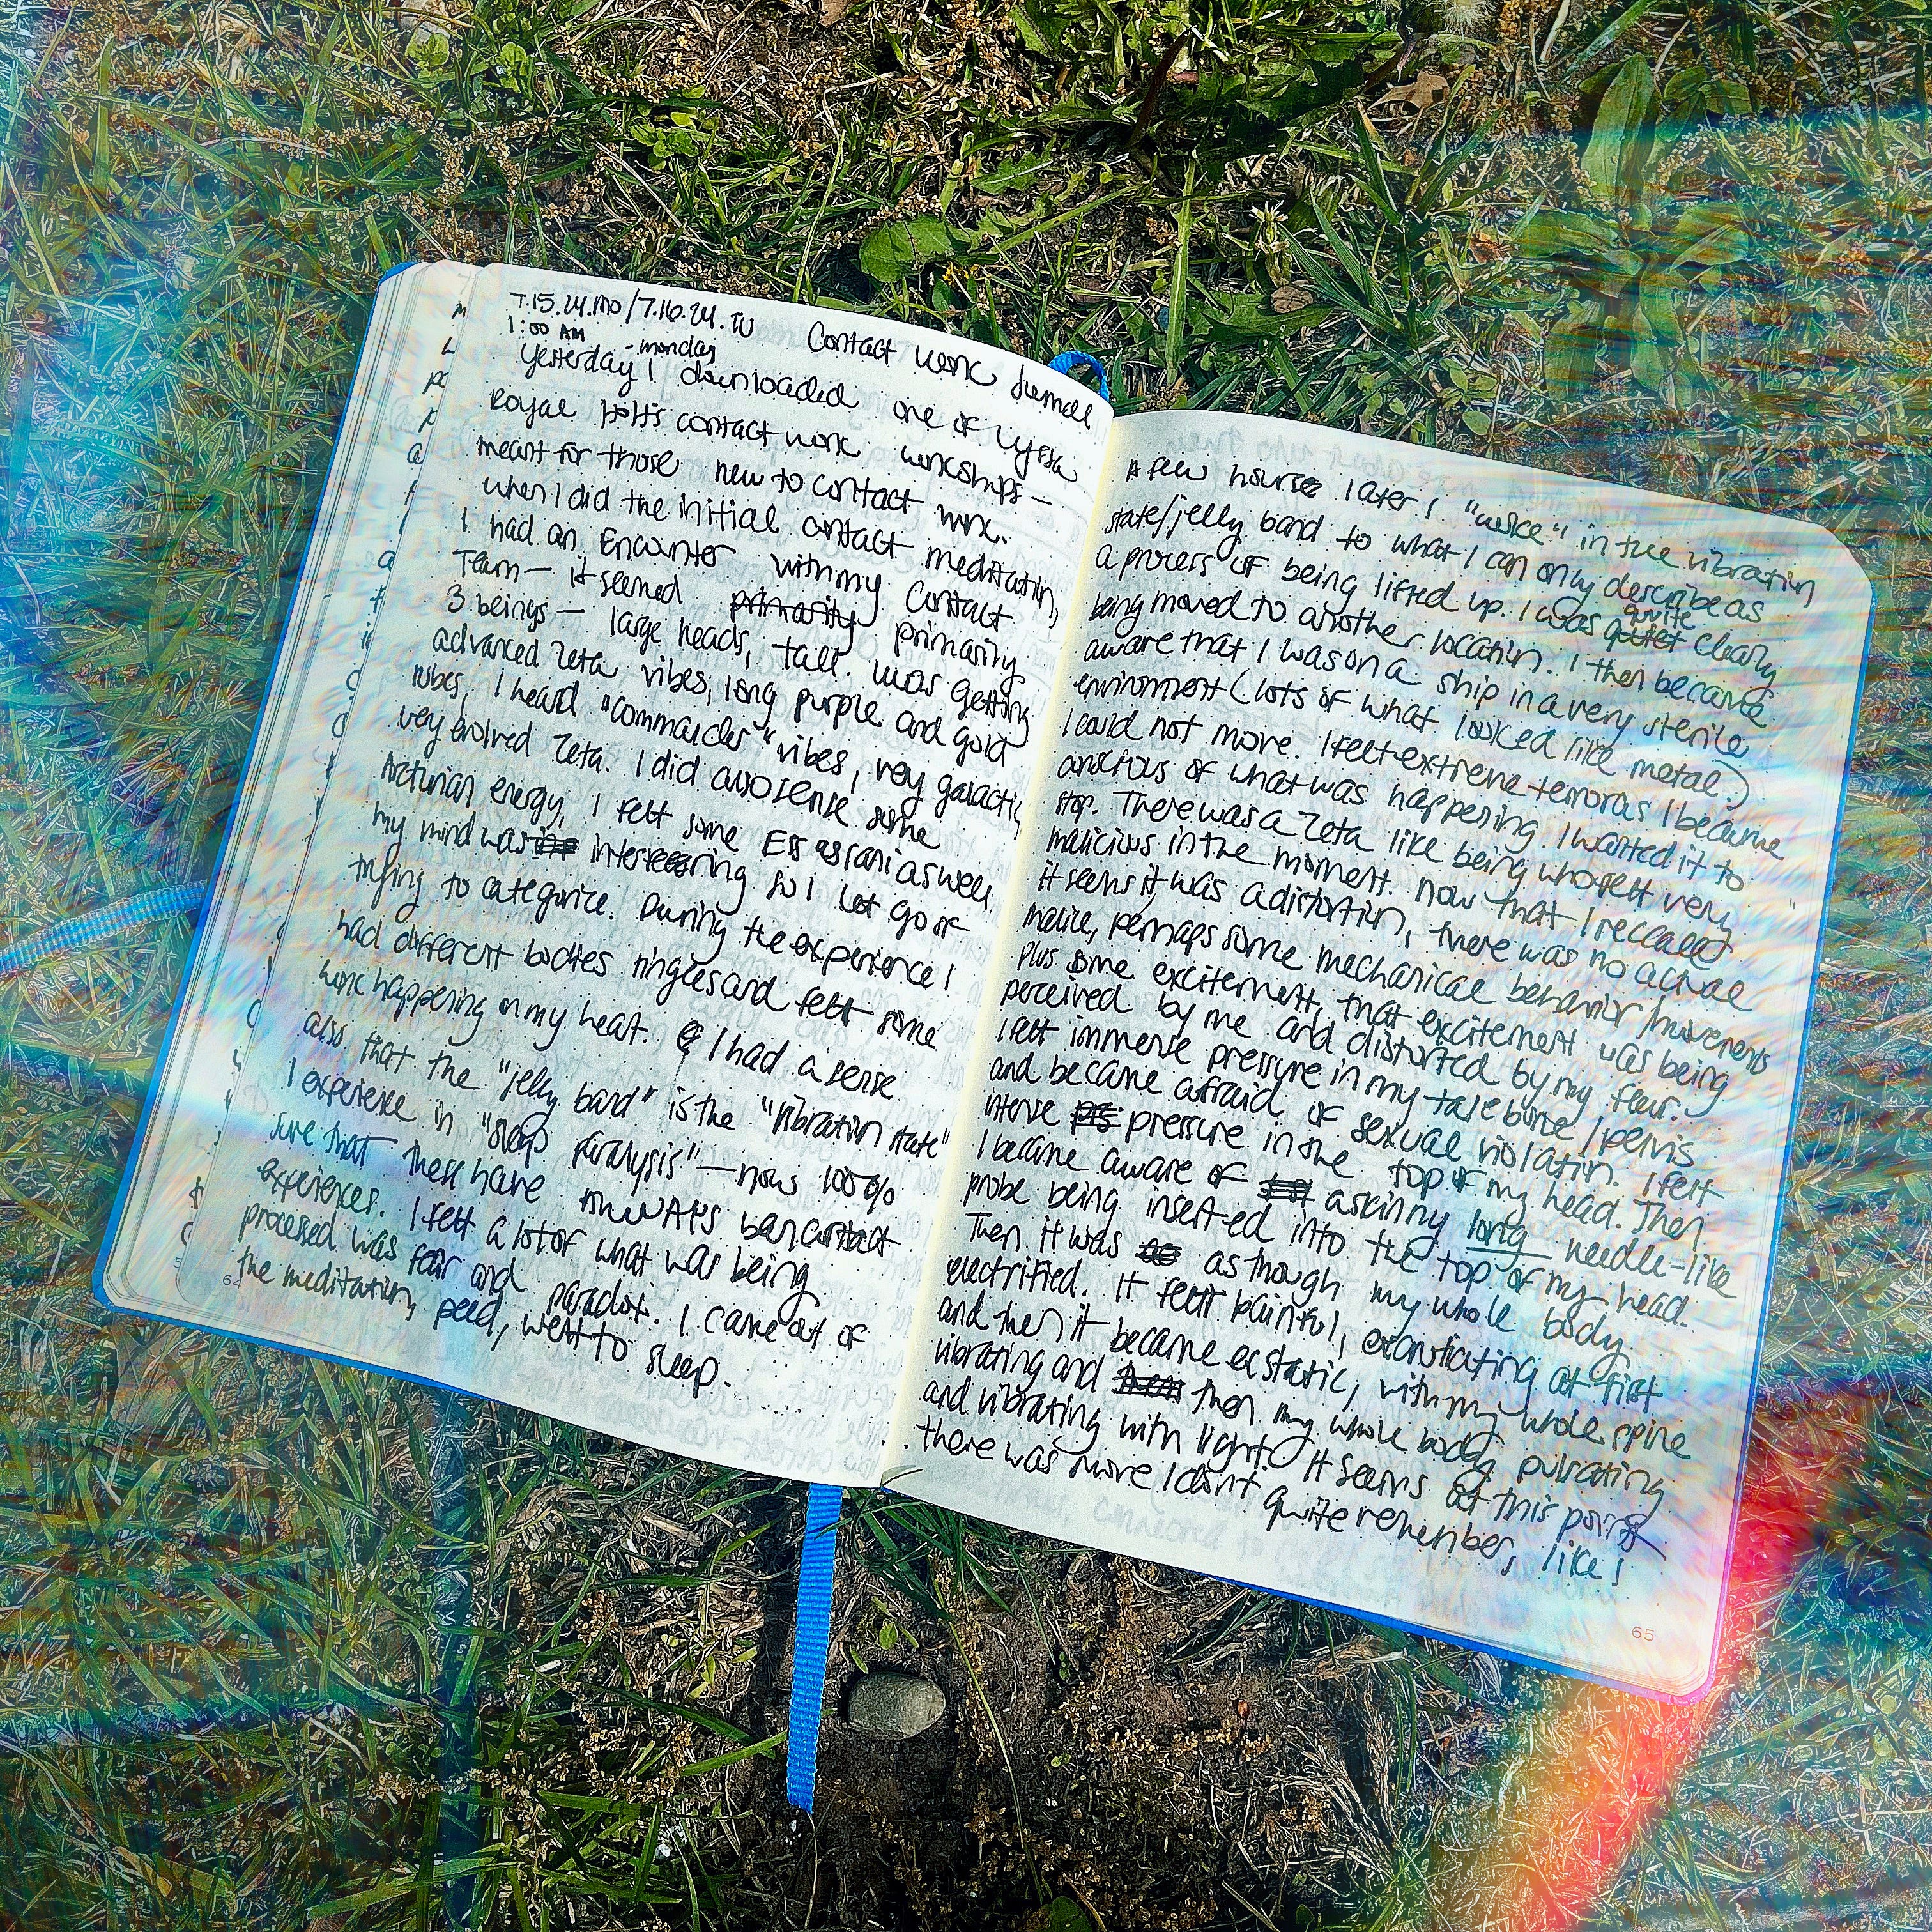 7.15.24.MO/7.16.24.TU Contact Work Journal
1:00 AM
Yesterday - monday I downloaded one of Lyssa
Royal Holt's contact work workshops -
meant for those new to contact work.
When I did the initial contact meditation,
I had an Encounter with my Contact
Team - it seemed primarily primarily
3 beings - large heads, tall. Was getting
advanced Zeta vibes, long purple and gold
robes, I heard "commander" vibes, very galactic,
very evolved Zeta. I did also sense some
Arcturian energy, I felt some Essassani as well.
my mind was interfering so I let go of
trying to categorize. During the experience I
had different bodies tingles and felt some
work happening on my heart. & I had a sense
also that the "jelly band" is the "vibration state"
I experience in "sleep paralysis" - now 100%
sure that these have ALWAYS been contact
experiences. I felt a lot of what was being
processed was fear and paradox. I came out of
the meditation, peed, went to sleep.
.....
64
A few hours later I "woke" in the vibration
state/jelly band to what I can only describe as
a process of being lifted up. I was quite clearly
being moved to another location. I then became
aware that I was on a ship in a very sterile
environment (lots of what looked like metal)
I could not move. I felt extreme terror as I became
conscious of what was happening. I wanted it to
stop. There was a Zeta like being who felt very
malicious in the moment. Now that I recall
it seems it was a distortion, there was no actual
malice, perhaps some mechanical behavior/movements
plus some excitement, that excitement was being
perceived by me and distorted by my fear.
I felt immense pressure in my tailbone/pelvis
and became afraid of sexual violation. I felt
intense pressure in the top of my head. Then
I became aware of a skinny long needle-like
probe being inserted into the top of my head.
Then it was as though my whole body
electrified. It felt painful, excruciating at first
and then it became ecstatic, with my whole spine
vibrating and then my whole body pulsating
and vibrating with light. It seems at this point
there was more I don't quite remember, like I
65